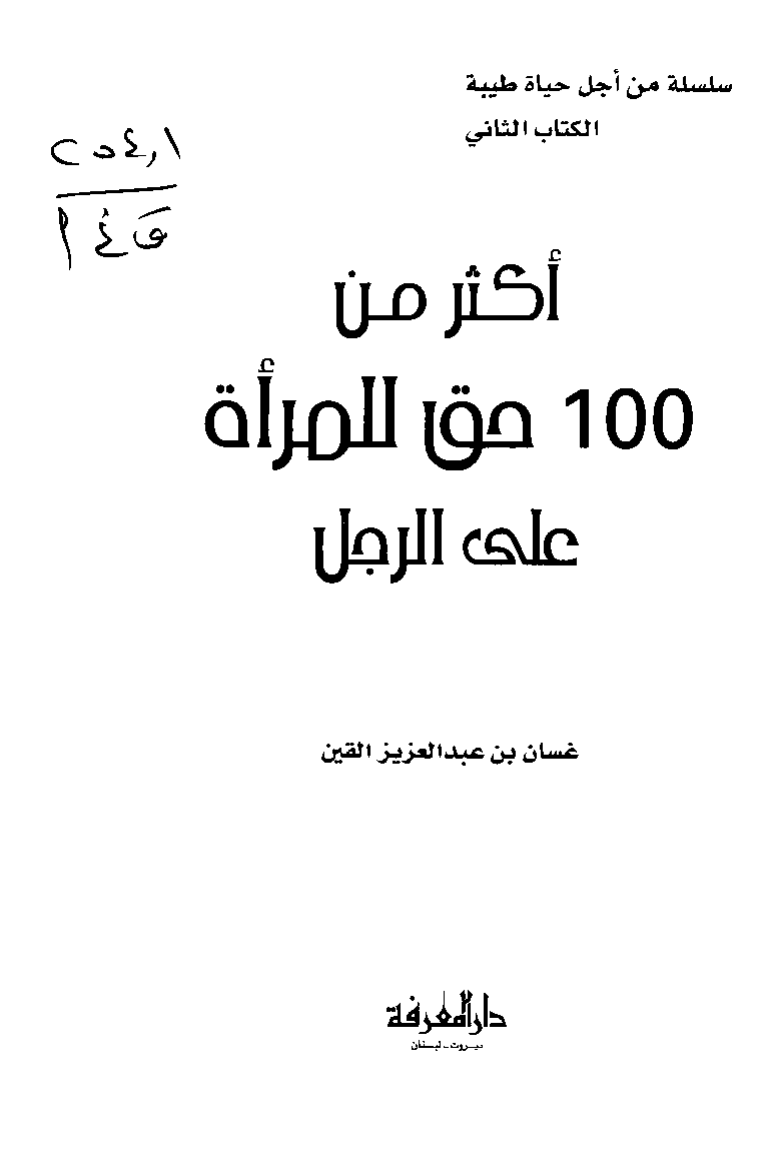 سلسلة من أجل حياة طيبة
الكتاب الثاني
أكثر من
100 حق للمرأة
على الرجل
غسان بن عبدالعزيز القين
دار المعرفة
بيروت - لبنان